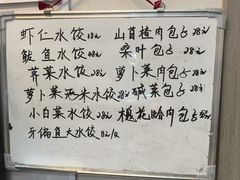 虾仁水饺38元 山苜楂肉包子28元
鲅鱼水饺48元 桑叶包子28元
荠菜水饺28元 萝卜菜肉包子28元
萝卜菜水饺28元 碱菜包子28元
小白菜水饺28元 槐花蛤肉包子
牙偏鱼大水饺82元/位